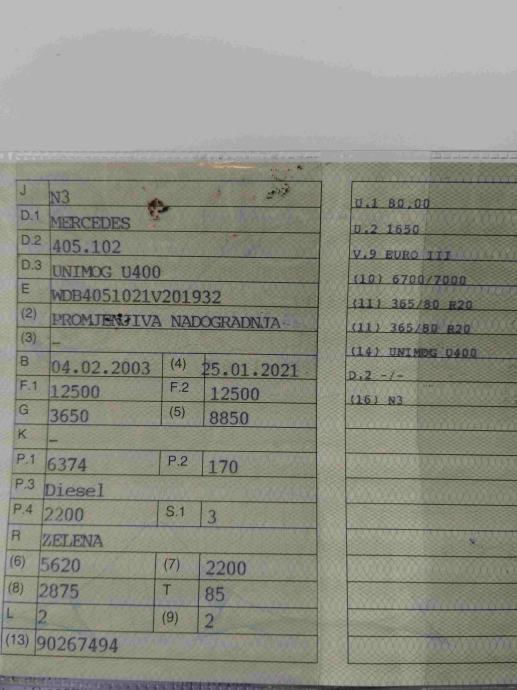 J N3
D.1 MERCEDES
D.2 405.102
D.3 UNIMOG U400
E WDB4051021V201932
(2) PROMJENJIVA NADOGRADNJA
(3) –
B 04.02.2003 (4) 25.01.2021
F.1 12500 F.2 12500
G 3650 (5) 8850
K –
P.1 6374 P.2 170
P.3 Diesel
P.4 2200 S.1 3
R ZELENA
(6) 5620 (7) 2200
(8) 2875 T 85
L 2 (9) 2
(13) 90267494
U.1 80,00
U.2 1650
V.9 EURO III
(10) 6700/7000
(11) 365/80 R20
(11) 365/80 R20
(14) UNIMOG U400
D.2 -/-
(16) N3